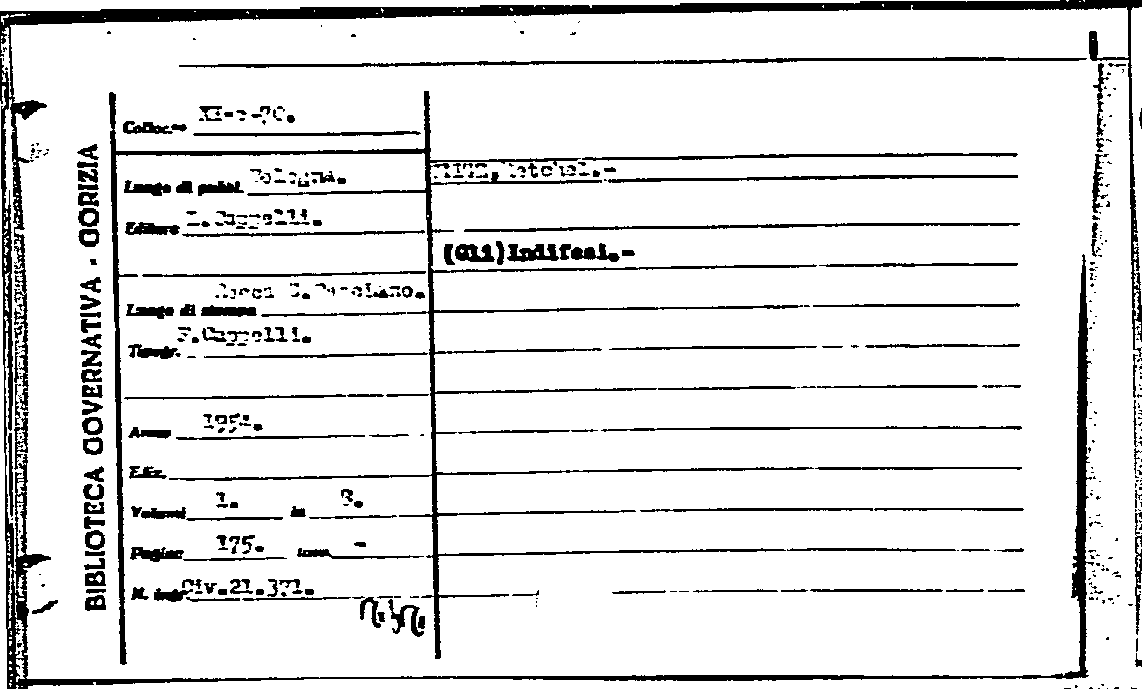 BIBLIOTECA GOVERNATIVA - GORIZIA
Colloc.ne
Luogo di pubbl. Bologna.-
Editore L.Cappelli.
(Gli)Indifesi.-
Luogo di stampa Rocca S.Casciano.
Tipogr. F.Cappelli.
Anno
Ediz.
Volumi 1. in 8.
Pagine 175. tavv. -
N. ingr. Civ.21.371.